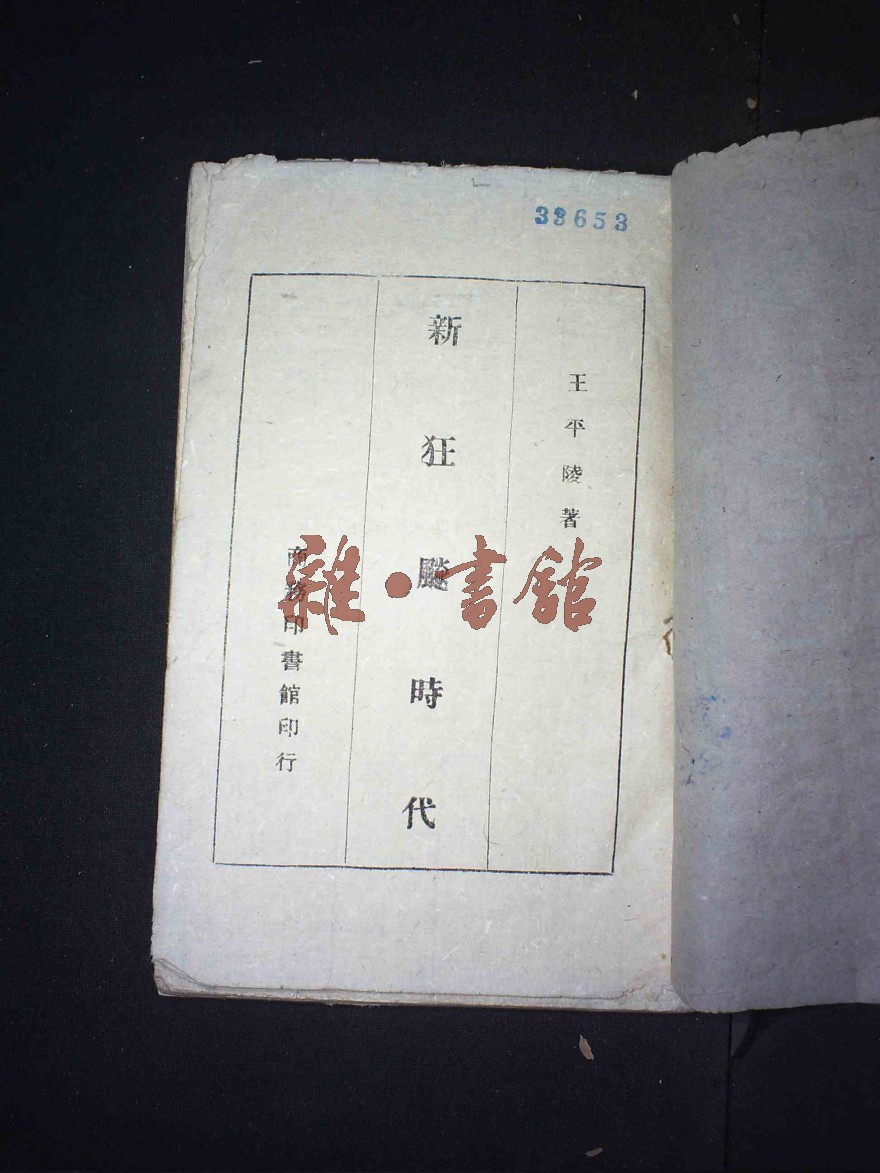 33653
王平陵著
新狂飈時代
商務印書館印行
雜·書館